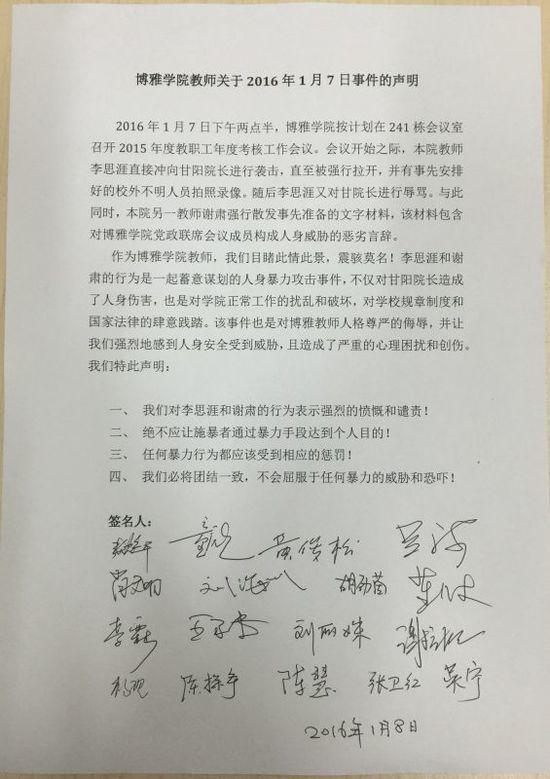 博雅学院教师关于 2016 年 1 月 7 日事件的声明
2016 年 1 月 7 日下午两点半，博雅学院按计划在 241 栋会议室
召开 2015 年度教职工年度考核工作会议。会议开始之际，本院教师
李思涯直接冲向甘阳院长进行袭击，直至被强行拉开，并有事先安排
好的校外不明人员拍照录像。随后李思涯又对甘院长进行辱骂。与此
同时，本院另一教师谢肃强行散发事先准备的文字材料，该材料包含
对博雅学院党政联席会议成员构成人身威胁的恶劣言辞。
作为博雅学院教师，我们目睹此情此景，震骇莫名！李思涯和谢
肃的行为是一起蓄意谋划的人身暴力攻击事件，不仅对甘阳院长造成
了人身伤害，也是对学院正常工作的扰乱和破坏，对学校规章制度和
国家法律的肆意践踏。该事件也是对博雅教师人格尊严的侮辱，并让
我们强烈地感到人身安全受到威胁，且造成了严重的心理困扰和创伤。
我们特此声明：
一、 我们对李思涯和谢肃的行为表示强烈的愤慨和谴责！
二、 绝不应让施暴者通过暴力手段达到个人目的！
三、 任何暴力行为都应该受到相应的惩罚！
四、 我们必将团结一致，不会屈服于任何暴力的威胁和恐吓！
签名人：
黄俊松
肖文明
李霖 刘丽姝
陈慧 张卫红 吴宁
2016年1月8日